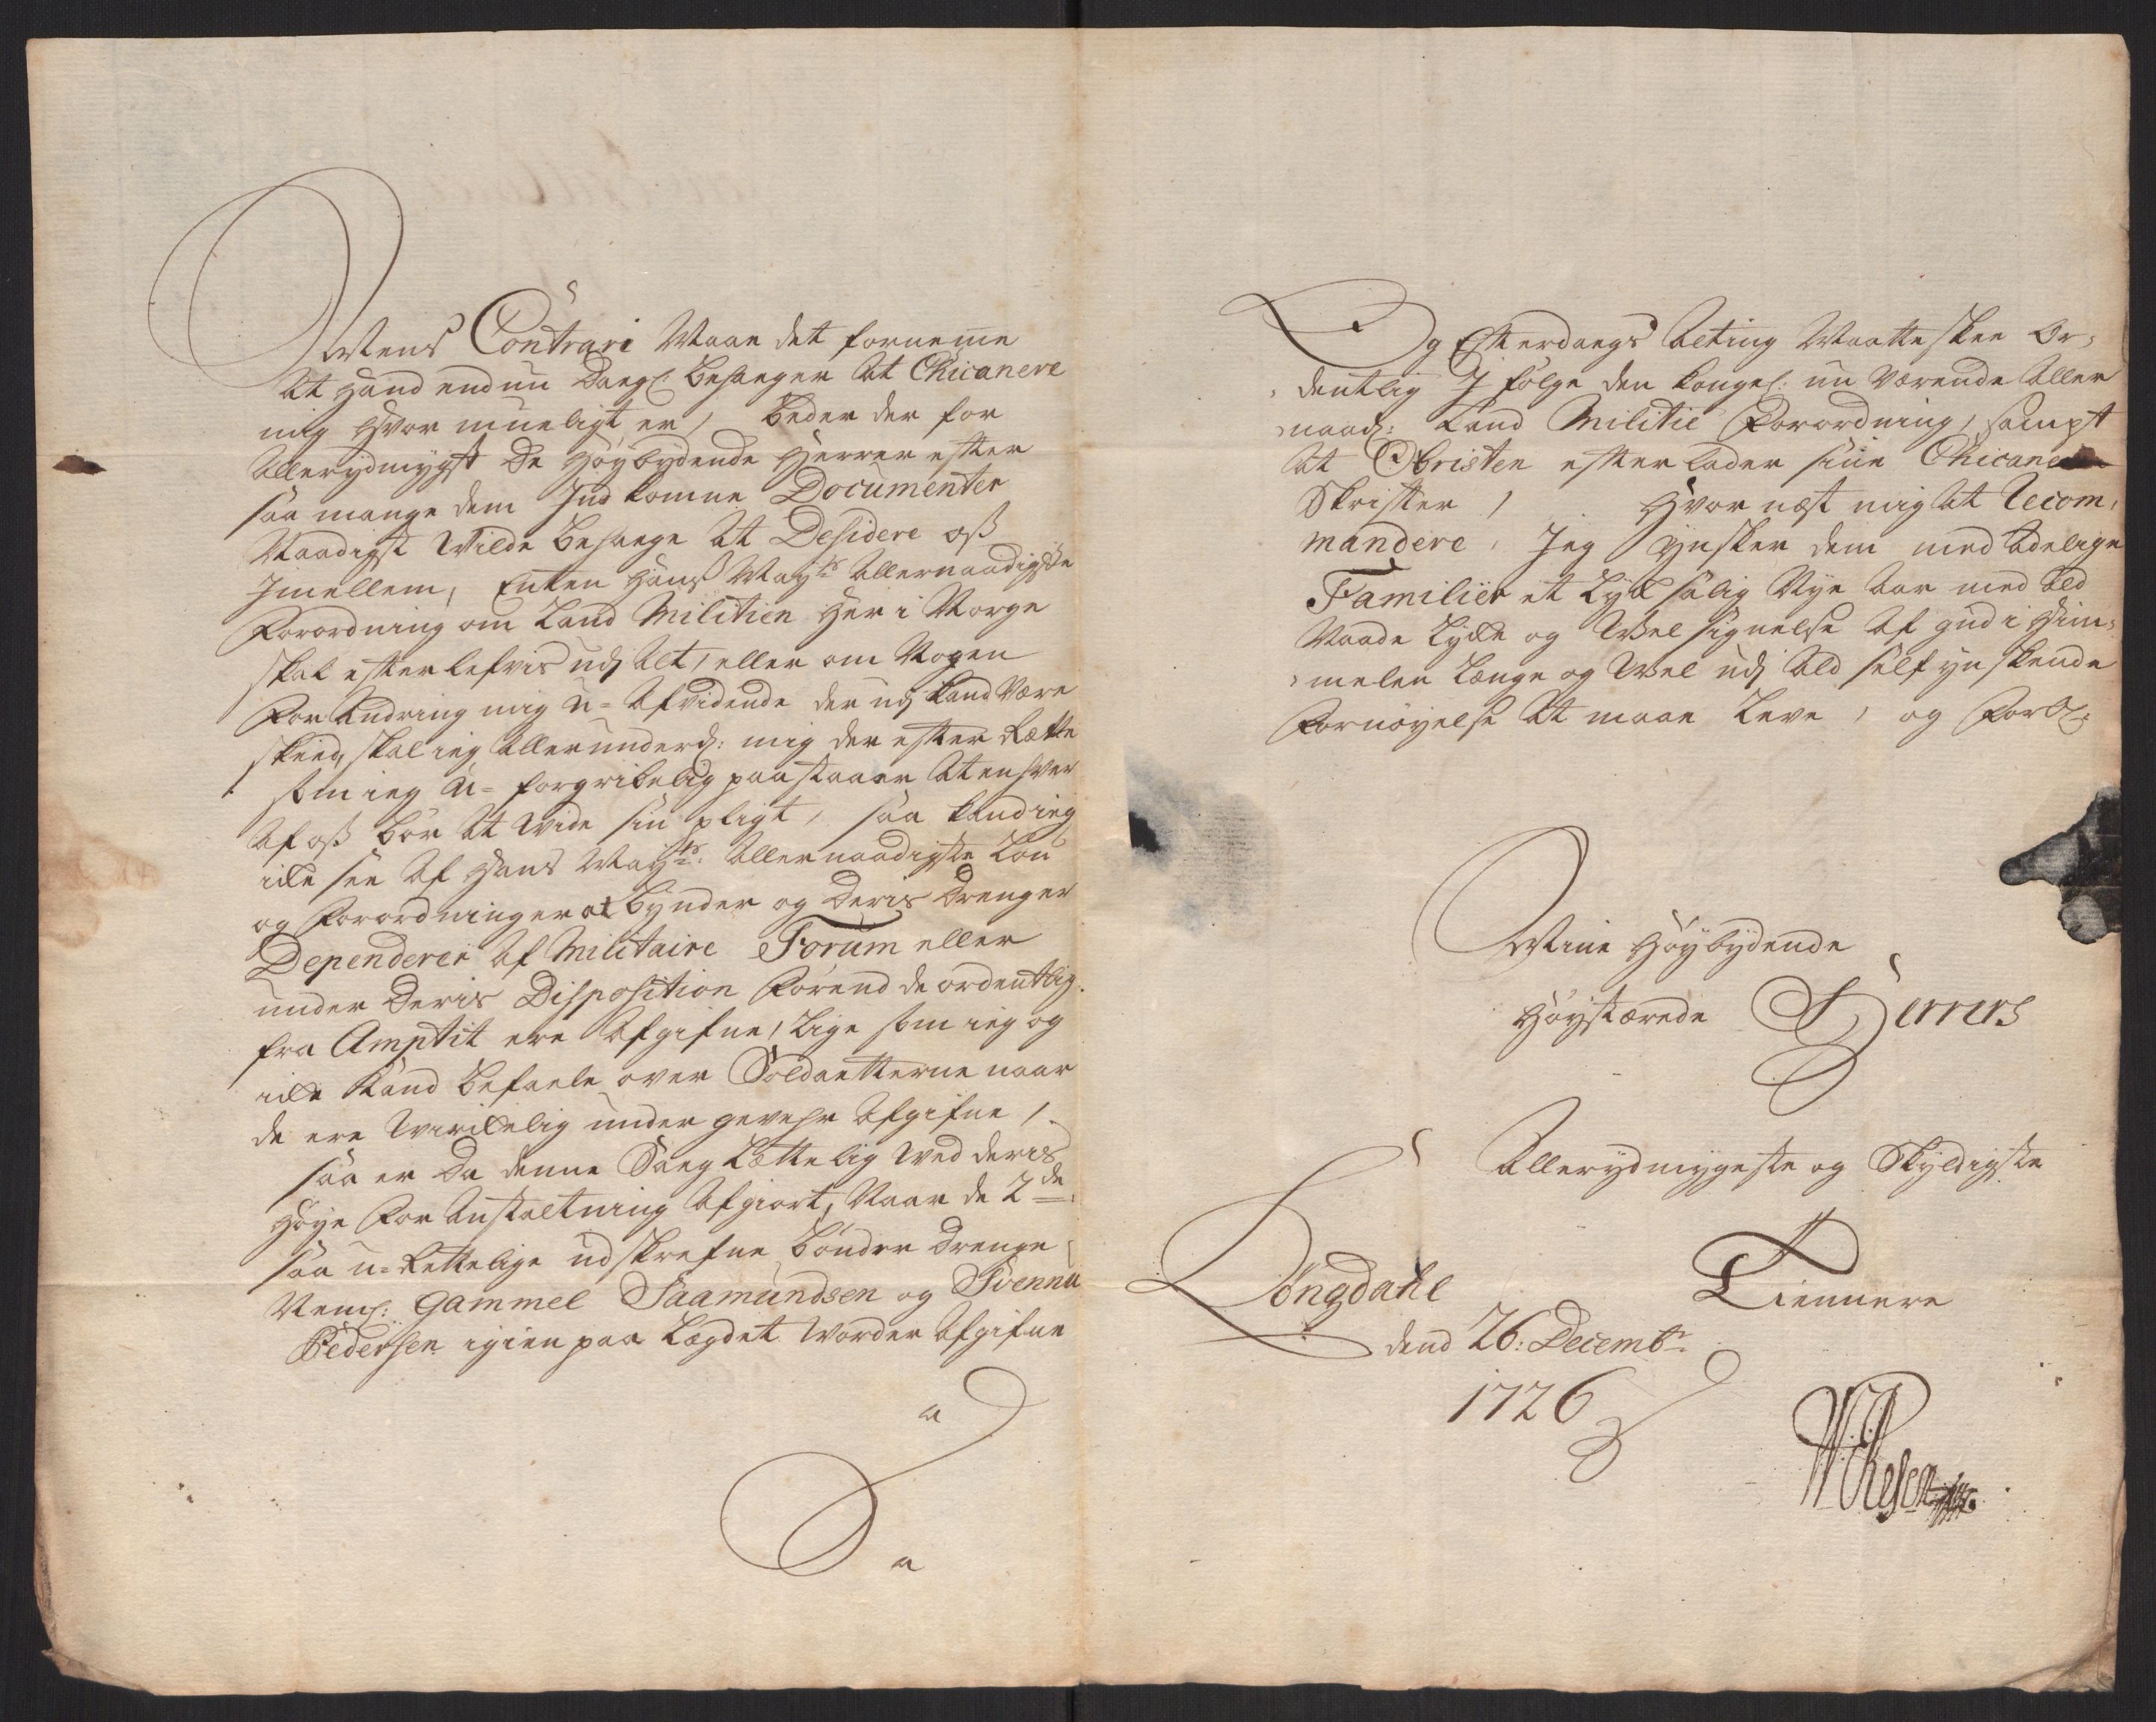 Mens Contrari Maae det fornemme
At hand endnu dagl: behager At Chicanere
mig hvor mueligt er, beder der for
Allerydmygst De Høybydende Herrer efter
saa mange dem Ind komne Documenter
Naadigst Wilde behage At Desidere oß
Imellem, Enten Hans Mayts Allernaadigste
Forordning om Land Militien her i Norge
skal efterlefvis udj Alt, eller om Nogen
For Andring mig u-Afvidende der udj kand være
skeed, skal ieg Allerunderd: mig der efter Rætte
som ieg u-forgribelig paastaaer At enhver
Af oß bør At Wide sin pligt, saa kand ieg
icke see Af Hans Mayts: Allernaadigste Lou
og Forordninger at bønder og deris drenger
Dependerer Af Militaire Forum eller
under Deris Disposition Førend de ordentlig
fra Amptit ere Afgifne, Lige som ieg og
icke kand befaele over Soldatterne naar
de ere Wirckelig under gevehr Afgifne,
saa er da denne Saeg Lættelig Wed deris
høye For Anstaltning Afgiort, Naar de 2de
saa u-Rettelige udskrefne bønder drenge
Neml: Gammel Saamundsen og Svennu
Pedersen igien paa Lægdet Worder Afgifne
Og Efterdags Alting Maatte skee Or-
dentlig J følge den kongel: nu Værende Aller
naad: Land Militie Forordning, sampt
At Obristen efterlader sine Chicane
Skrifter, Hvor næst mig At Recom-
mandere, Jeg Ynsker dem med Adelige
Familier et Lyksalig Nye Aar med Ald
Naade Lycke og Welsignelse Af gud i Him-
melen Længe og Wel udj Ald self ynskende
Fornøyelse At maae Leve, og Forbl:
Mine Høybydende
Høystærede Herrers
Allerydmygeste og Skyldigste
Tiennere
Longdahl
dend 26: Decembr
1726